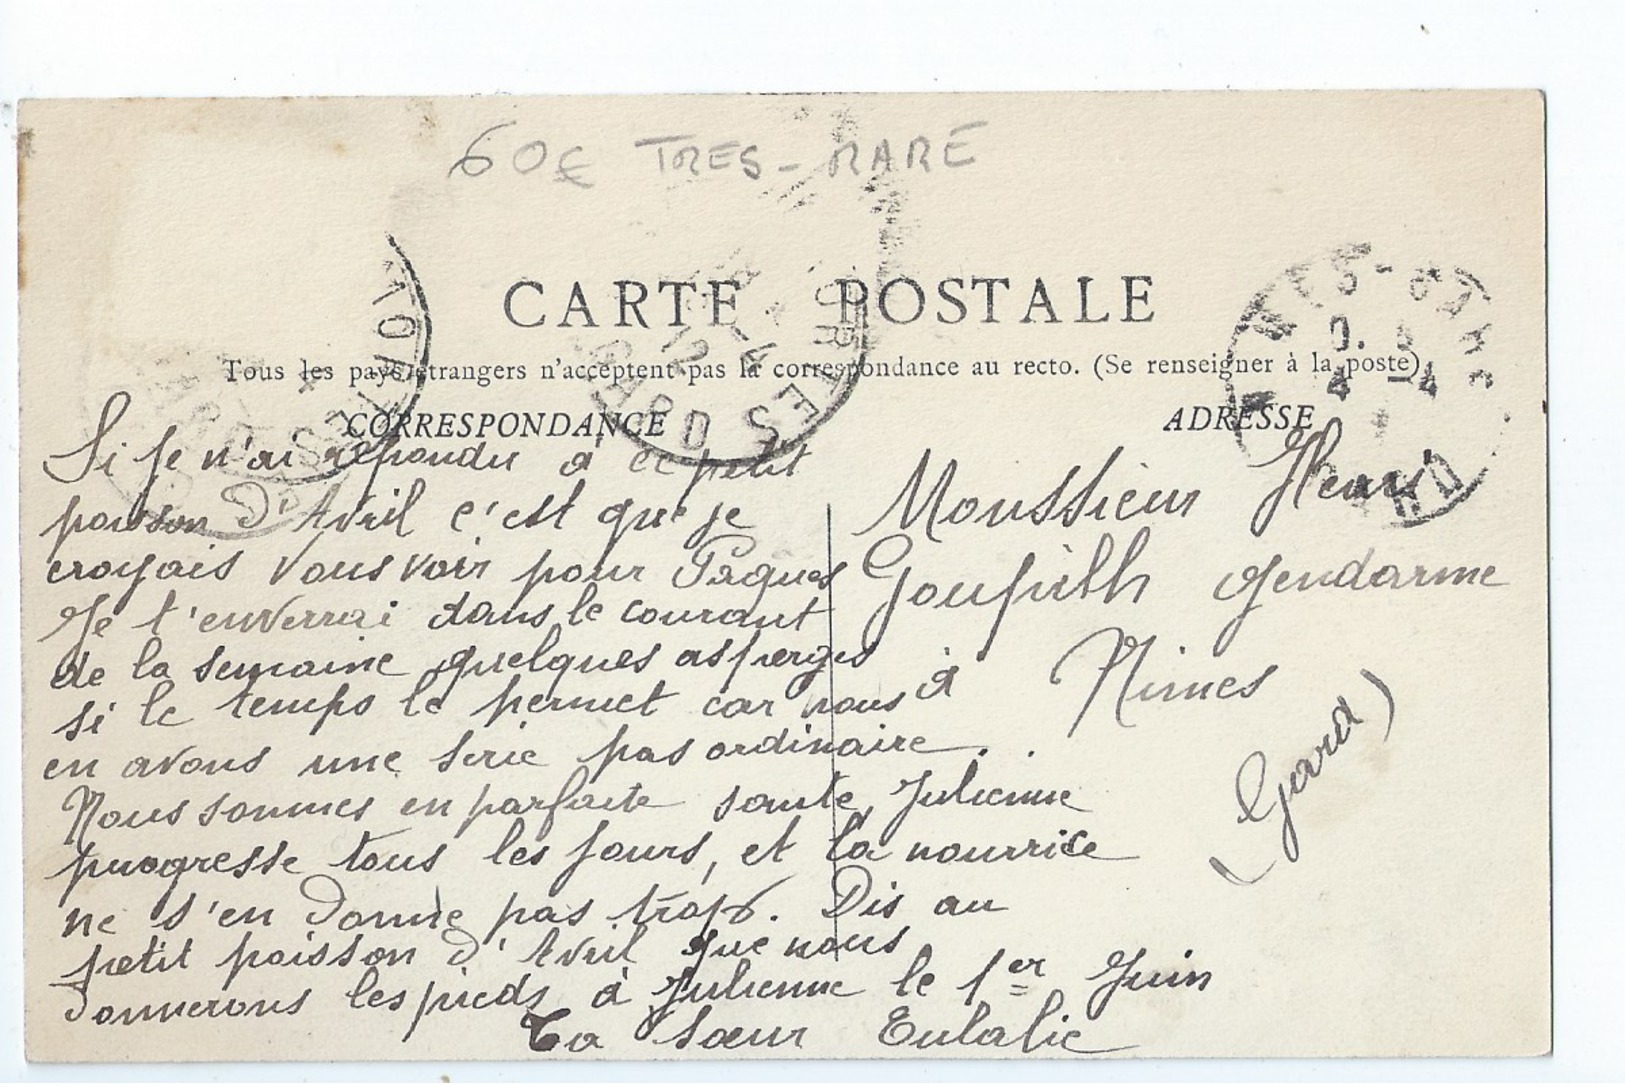 60€ TRES-RARE
CARTE POSTALE
Tous les pays étrangers n'acceptent pas la correspondance au recto. (Se renseigner à la poste)
CORRESPONDANCE
Si je n'ai répondu à ce petit
poisson d'Avril c'est que je
croyais vous voir pour Paques
Je t'enverrai dans le courant
de la semaine quelques asperges
si le temps le permet car nous
en avons une serie pas ordinaire.
Nous sommes en parfaite sante, Julienne
progresse tous les jours, et la nourrice
ne s'en donne pas trop. Dis au
petit poisson d'Avril que nous
donnerons les pieds à Julienne le 1er Juin
Ta sœur Eulalie
ADRESSE
Monssieur Henri
gendarme
à Nimes
(Gard)
NIMES-GARE
GARD